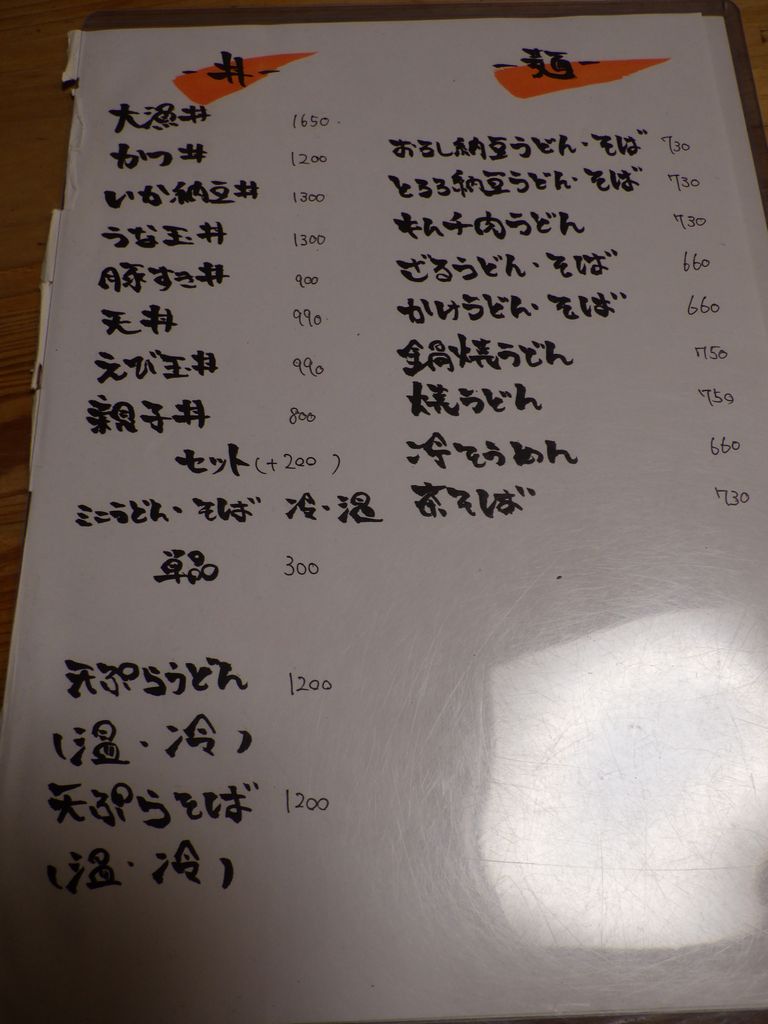 -丼-
大漁丼 1650.
かつ丼 1200
いか納豆丼 1300
うな玉丼 1300
豚すき丼 900
天丼 990
えび玉丼 990
親子丼 800
セット(+200)
ミニうどん・そば 冷・温
単品 300
天ぷらうどん 1200
(温・冷)
天ぷらそば 1200
(温・冷)
-麺-
おろし納豆うどん・そば 730
とろろ納豆うどん・そば 730
キムチ肉うどん 730
ざるうどん・そば 660
かけうどん・そば 660
鍋焼うどん 750
焼うどん 750
冷そうめん 660
茶そば 730